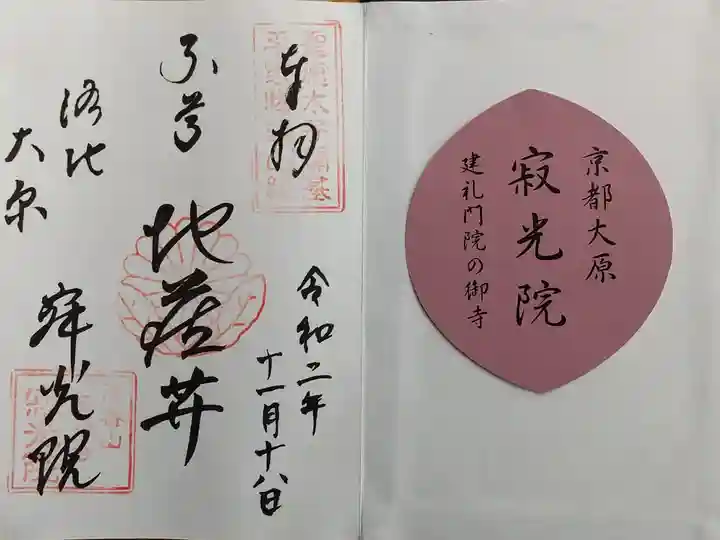 京都大原
寂光院
建礼門院の御寺
奉拝
令和二年
十一月十八日
本尊
地蔵𦬇
洛北
大原
寂光院